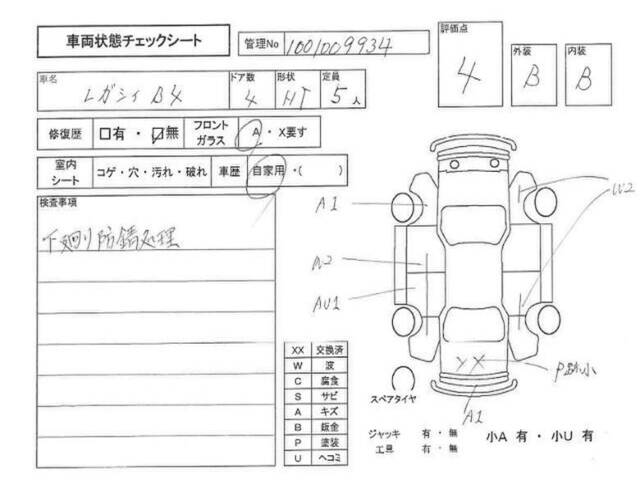 車両状態チェックシート 管理No 1001009934
評価点 4 外装 B 内装 B
車名 レガシィ B4 ドア数 4 形状 HT 定員 5人
修復歴 □有・☑無 フロントガラス A・X要す
室内シート コゲ・穴・汚れ・破れ 車歴 自家用・( )
検査事項
下廻り防錆処理
A1
W2
AU1
A1
XX 交換済
W 波
C 腐食
S サビ
A キズ
B 鈑金
P 塗装
U ヘコミ
スペアタイヤ
ジャッキ 有・無
工具 有・無
小A 有・小U 有